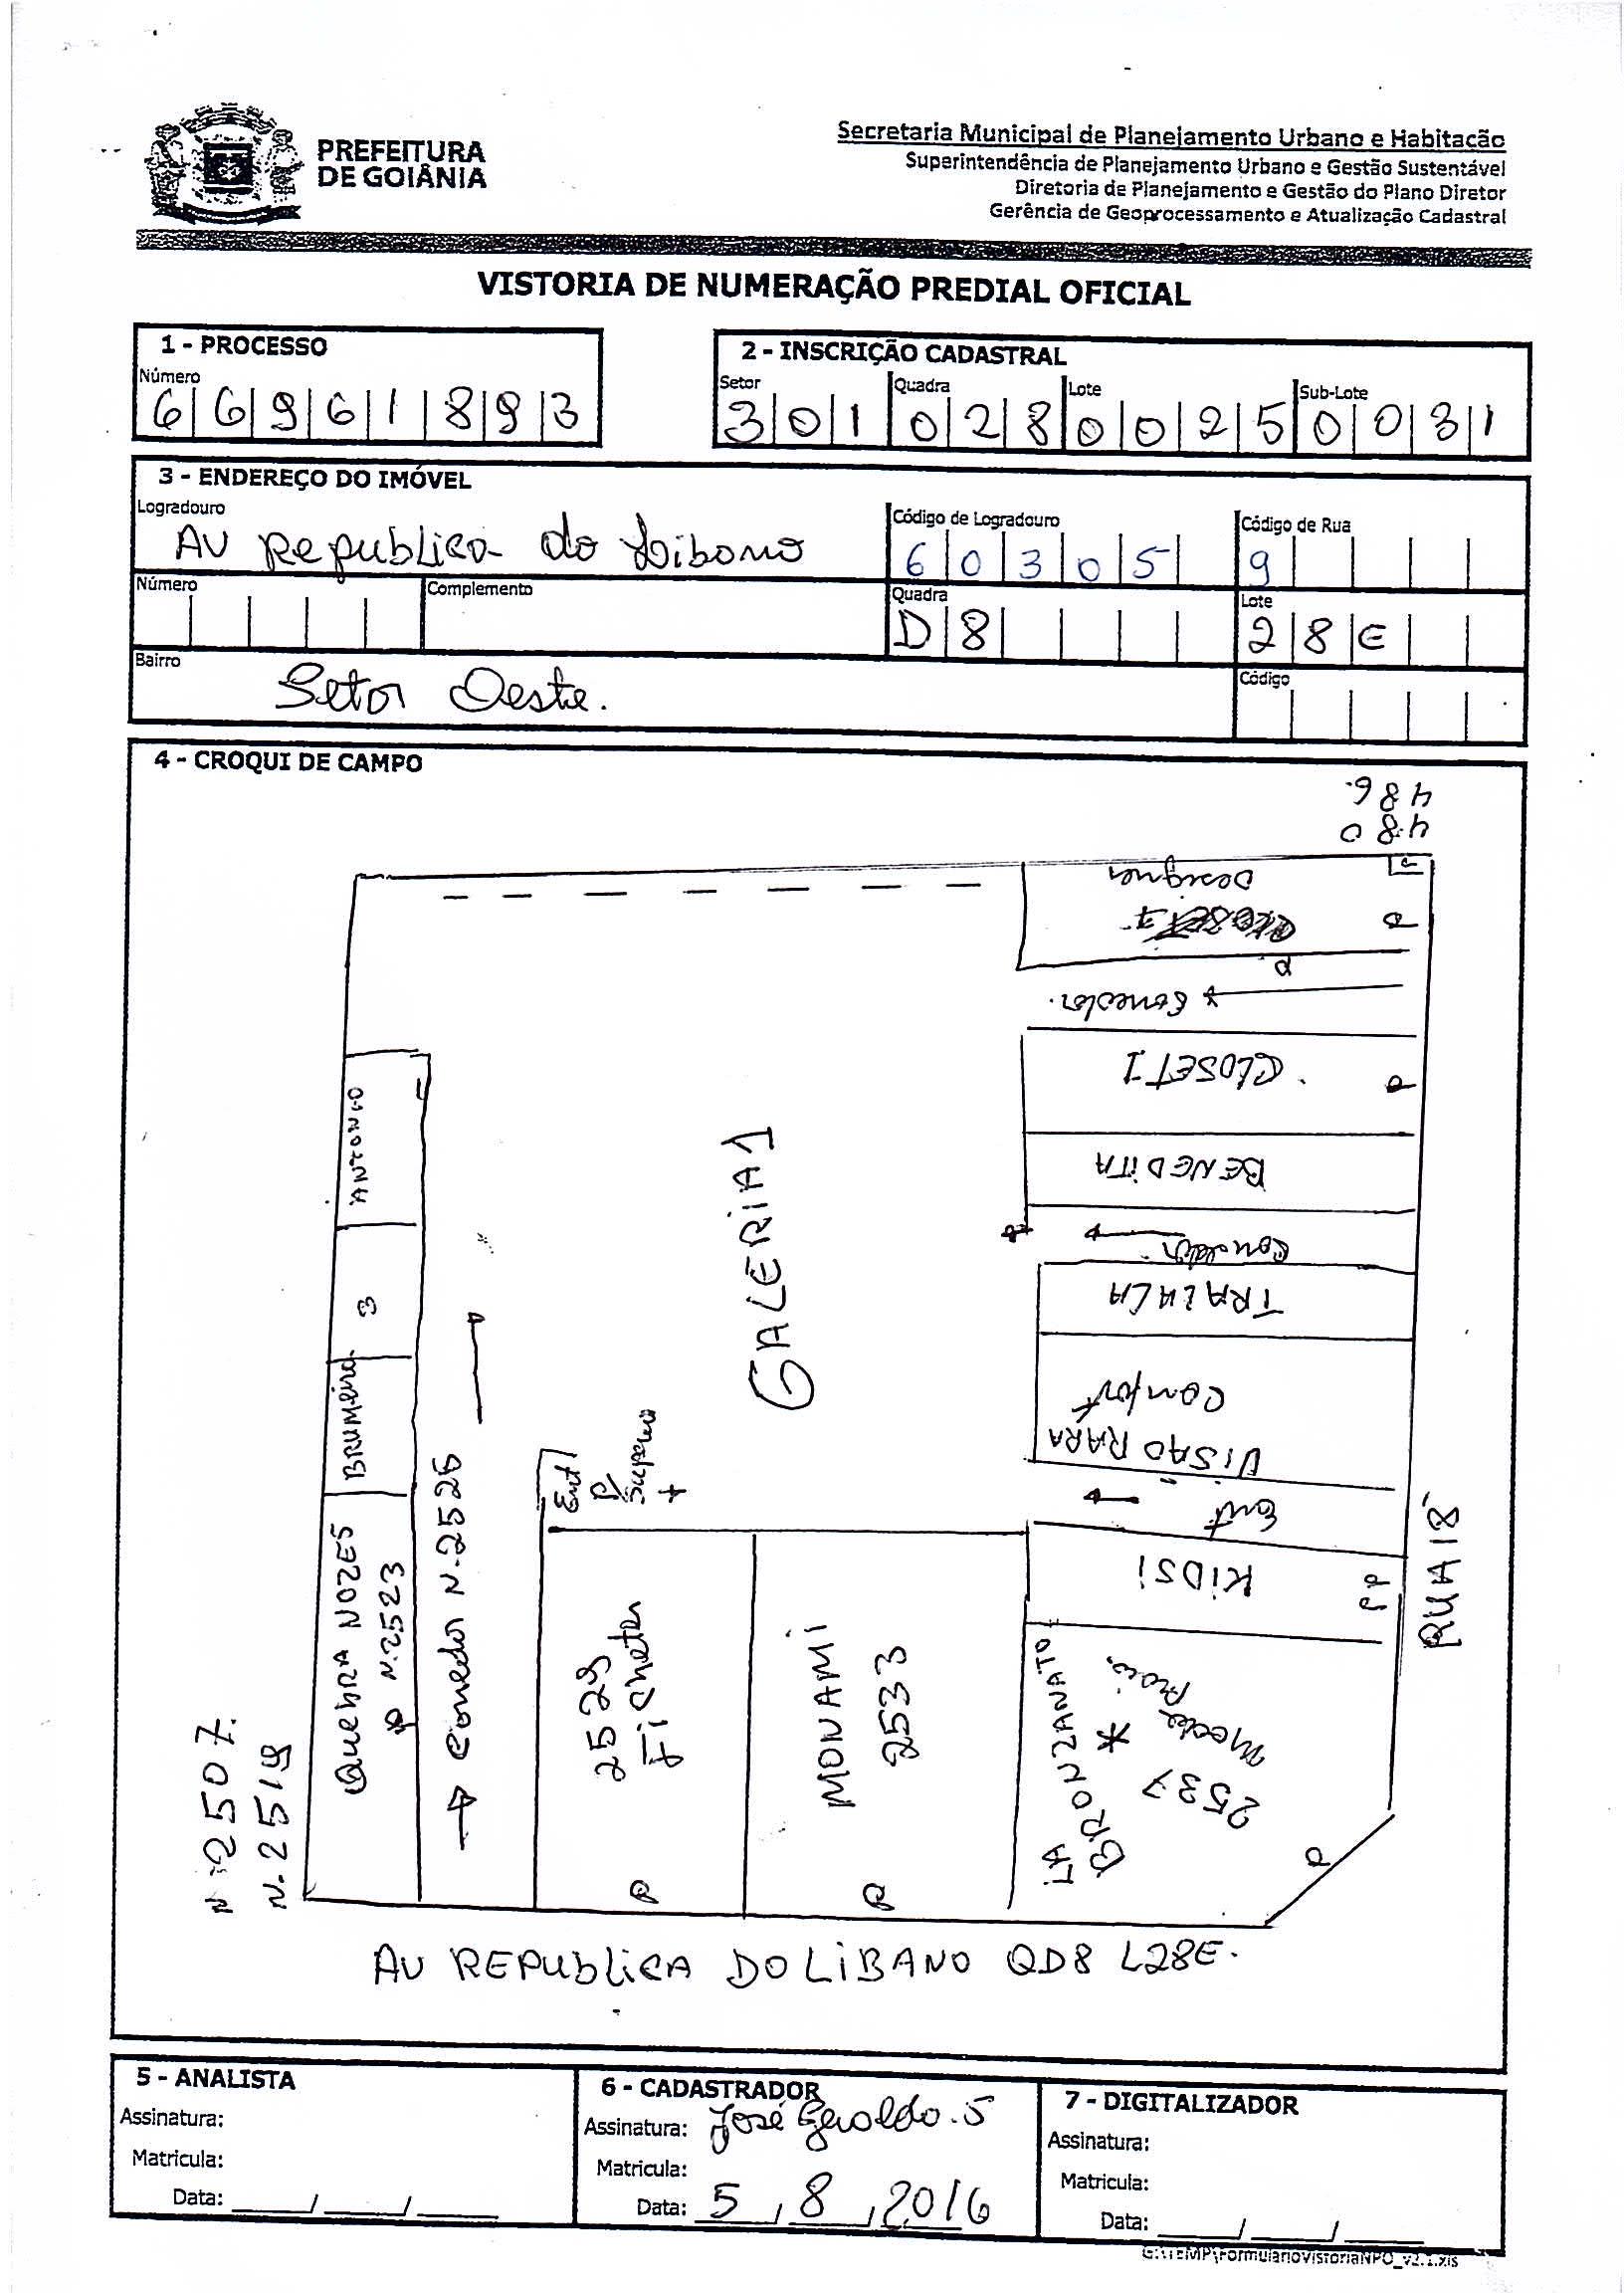 PREFEITURA
DE GOIÂNIA
Secretaria Municipal de Planejamento Urbano e Habitação
Superintendência de Planejamento Urbano e Gestão Sustentável
Diretoria de Planejamento e Gestão do Plano Diretor
Gerência de Geoprocessamento e Atualização Cadastral
VISTORIA DE NUMERAÇÃO PREDIAL OFICIAL
1 - PROCESSO
Número
66961893
2 - INSCRIÇÃO CADASTRAL
Setor Quadra Lote Sub-Lote
301 028 0025 0031
3 - ENDEREÇO DO IMÓVEL
Logradouro
AV Republica do Libano
Código de Logradouro
60305
Código de Rua
9
Número
Complemento
Quadra
D8
Lote
28E
Bairro
Setor Oeste.
Código
4 - CROQUI DE CAMPO
486
480
Designer
P
P
Corredor
CLOSET 1
P
BENEDITA
Corredor
TRALALA
Comfort
VISAO RARA
Ent
KIDS!
PP
RUA 18
ANTONIO
3
BRUMMEND
QUEBRA NOZES
P N.2523
Corredor N.2525
GALERIA 1
Ent
P/
Superior
2529
Ficheter
P
MONAMI
2533
P
LA
BRONZANATO
2537
P
N:2507.
N.2519
AV REPUBLICA DO LIBANO QD8 L28E.
5 - ANALISTA
Assinatura:
Matricula:
Data: ____/____/____
6 - CADASTRADOR
Assinatura: José Geraldo.S
Matricula:
Data: 5/8/2016
7 - DIGITALIZADOR
Assinatura:
Matricula:
Data: ____/____/____
G:\TEMP\FormularioVistoriaNPO_v2.1.xls